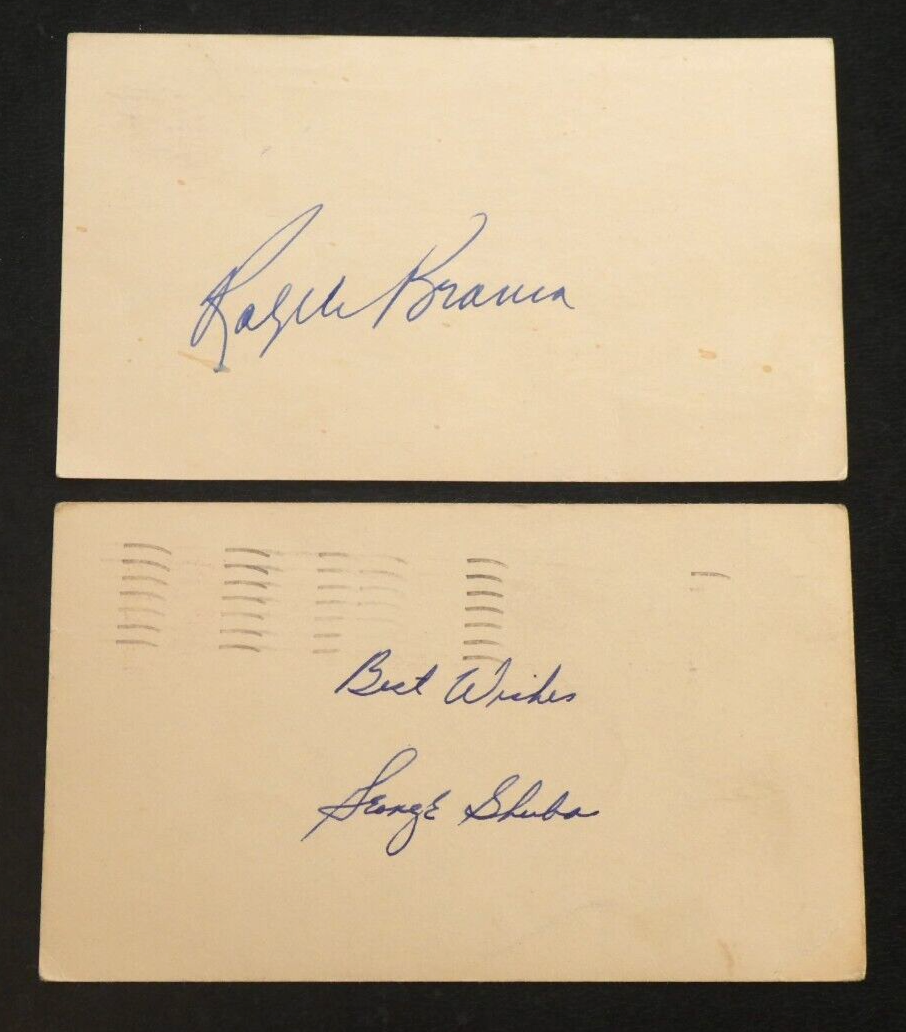 Ralph Branca
Best Wishes
George Shuba